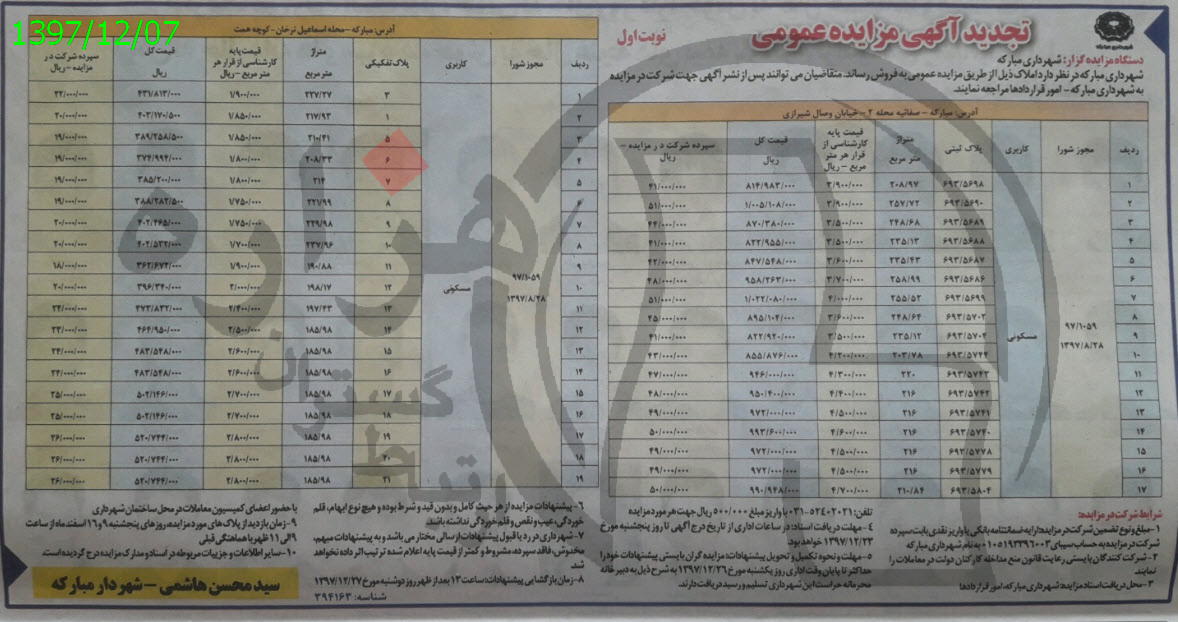 1397/12/07
شهرداری مبارکه
تجدید آگهی مزایده عمومی
نوبت اول
دستگاه مزایده گزار: شهرداری مبارکه
شهرداری مبارکه در نظر دارد املاک ذیل از طریق مزایده عمومی به فروش رساند. متقاضیان می توانند پس از نشر آگهی جهت شرکت در مزایده
به شهرداری مبارکه - امور قراردادها مراجعه نمایند.
آدرس: مبارکه - صفائیه محله ۲ - خیابان وصال شیرازی
ردیف مجوز شورا کاربری پلاک ثبتی متراژ متر مربع قیمت پایه کارشناسی از قرار هر متر مربع - ریال قیمت کل ریال سپرده شرکت در مزایده - ریال
۹۷/۱۰۵۹
۱۳۹۷/۸/۲۸
مسکونی
۱ ۶۹۳/۵۶۹۸ ۲۰۸/۹۷ ۳/۹۰۰/۰۰۰ ۸۱۴/۹۸۳/۰۰۰ ۴۱/۰۰۰/۰۰۰
۲ ۶۹۳/۵۶۹۰ ۲۵۷/۷۲ ۳/۹۰۰/۰۰۰ ۱/۰۰۵/۱۰۸/۰۰۰ ۵۱/۰۰۰/۰۰۰
۳ ۶۹۳/۵۶۸۹ ۲۴۸/۶۸ ۳/۵۰۰/۰۰۰ ۸۷۰/۳۸۰/۰۰۰ ۴۴/۰۰۰/۰۰۰
۴ ۶۹۳/۵۶۸۸ ۲۳۵/۱۳ ۳/۵۰۰/۰۰۰ ۸۲۲/۹۵۵/۰۰۰ ۴۱/۰۰۰/۰۰۰
۵ ۶۹۳/۵۶۸۷ ۲۳۵/۴۳ ۳/۶۰۰/۰۰۰ ۸۴۷/۵۴۸/۰۰۰ ۴۲/۰۰۰/۰۰۰
۶ ۶۹۳/۵۶۸۶ ۲۵۸/۹۹ ۳/۷۰۰/۰۰۰ ۹۵۸/۲۶۳/۰۰۰ ۴۸/۰۰۰/۰۰۰
۷ ۶۹۳/۵۶۹۹ ۲۵۵/۵۲ ۴/۰۰۰/۰۰۰ ۱/۰۲۲/۰۸۰/۰۰۰ ۵۱/۰۰۰/۰۰۰
۸ ۶۹۳/۵۷۰۲ ۲۴۸/۶۴ ۳/۶۰۰/۰۰۰ ۸۹۵/۱۰۴/۰۰۰ ۴۵/۰۰۰/۰۰۰
۹ ۶۹۳/۵۷۰۳ ۲۳۵/۱۲ ۳/۵۰۰/۰۰۰ ۸۲۲/۹۲۰/۰۰۰ ۴۱/۰۰۰/۰۰۰
۱۰ ۶۹۳/۵۷۴۴ ۲۰۳/۷۸ ۴/۲۰۰/۰۰۰ ۸۵۵/۸۷۶/۰۰۰ ۴۳/۰۰۰/۰۰۰
۱۱ ۶۹۳/۵۷۴۳ ۲۲۰ ۴/۳۰۰/۰۰۰ ۹۴۶/۰۰۰/۰۰۰ ۴۷/۰۰۰/۰۰۰
۱۲ ۶۹۳/۵۷۴۲ ۲۱۶ ۴/۴۰۰/۰۰۰ ۹۵۰/۴۰۰/۰۰۰ ۴۸/۰۰۰/۰۰۰
۱۳ ۶۹۳/۵۷۴۱ ۲۱۶ ۴/۵۰۰/۰۰۰ ۹۷۲/۰۰۰/۰۰۰ ۴۹/۰۰۰/۰۰۰
۱۴ ۶۹۳/۵۷۴۰ ۲۱۶ ۴/۶۰۰/۰۰۰ ۹۹۳/۶۰۰/۰۰۰ ۵۰/۰۰۰/۰۰۰
۱۵ ۶۹۳/۵۷۷۸ ۲۱۶ ۴/۵۰۰/۰۰۰ ۹۷۲/۰۰۰/۰۰۰ ۴۹/۰۰۰/۰۰۰
۱۶ ۶۹۳/۵۷۷۹ ۲۱۶ ۴/۵۰۰/۰۰۰ ۹۷۲/۰۰۰/۰۰۰ ۴۹/۰۰۰/۰۰۰
۱۷ ۶۹۳/۵۸۰۴ ۲۱۰/۸۴ ۴/۷۰۰/۰۰۰ ۹۹۰/۹۴۸/۰۰۰ ۵۰/۰۰۰/۰۰۰
شرایط شرکت در مزایده:
۱- مبلغ و نوع تضمین شرکت در مزایده: ارایه ضمانتنامه بانکی یا واریز نقدی بابت سپرده
شرکت در مزایده به حساب سیبای ۰۱۰۵۱۹۳۳۹۶۰۰۲ به نام شهرداری مبارکه
۲- شرکت کنندگان بایستی رعایت قانون منع مداخله کارکنان دولت در معاملات را
نمایند.
۳- محل دریافت اسناد مزایده: شهرداری مبارکه، امور قراردادها
تلفن: ۵۲۴۰۲۰۲۱-۰۳۱ با واریز مبلغ ۵۰۰/۰۰۰ ریال جهت هر مورد مزایده
۴- مهلت دریافت اسناد: در ساعات اداری از تاریخ درج آگهی تا روز پنجشنبه مورخ
۱۳۹۷/۱۲/۲۳ خواهد بود.
۵- مهلت و نحوه تکمیل و تحویل پیشنهادات: مزایده گران بایستی پیشنهادات خود را
حداکثر تا پایان وقت اداری روز یکشنبه مورخ ۱۳۹۷/۱۲/۲۶ به شرح ذیل به دبیرخانه
محرمانه حراست این شهرداری تسلیم و رسید دریافت دارند.
آدرس: مبارکه - محله اسماعیل ترخان - کوچه همت
ردیف مجوز شورا کاربری پلاک تفکیکی متراژ متر مربع قیمت پایه کارشناسی از قرار هر متر مربع - ریال قیمت کل ریال سپرده شرکت در مزایده - ریال
۹۷/۱۰۵۹
۱۳۹۷/۸/۲۸
مسکونی
۱ ۳ ۲۲۷/۲۷ ۱/۹۰۰/۰۰۰ ۴۳۱/۸۱۳/۰۰۰ ۲۲/۰۰۰/۰۰۰
۲ ۱ ۲۱۷/۹۳ ۱/۸۵۰/۰۰۰ ۴۰۳/۱۷۰/۵۰۰ ۲۰/۰۰۰/۰۰۰
۳ ۵ ۲۱۰/۴۱ ۱/۸۵۰/۰۰۰ ۳۸۹/۲۵۸/۵۰۰ ۱۹/۰۰۰/۰۰۰
۴ ۶ ۲۰۸/۳۳ ۱/۸۰۰/۰۰۰ ۳۷۴/۹۹۴/۰۰۰ ۱۹/۰۰۰/۰۰۰
۵ ۷ ۲۱۴ ۱/۸۰۰/۰۰۰ ۳۸۵/۲۰۰/۰۰۰ ۱۹/۰۰۰/۰۰۰
۶ ۸ ۲۲۱/۹۹ ۱/۷۵۰/۰۰۰ ۳۸۸/۲۸۲/۵۰۰ ۱۹/۰۰۰/۰۰۰
۷ ۹ ۲۲۹/۹۸ ۱/۷۵۰/۰۰۰ ۴۰۲/۴۶۵/۰۰۰ ۲۰/۰۰۰/۰۰۰
۸ ۱۰ ۲۳۷/۹۶ ۱/۷۰۰/۰۰۰ ۴۰۴/۵۳۲/۰۰۰ ۲۰/۰۰۰/۰۰۰
۹ ۱۱ ۱۹۰/۸۸ ۱/۹۰۰/۰۰۰ ۳۶۲/۶۷۲/۰۰۰ ۱۸/۰۰۰/۰۰۰
۱۰ ۱۲ ۱۹۸/۱۷ ۲/۰۰۰/۰۰۰ ۳۹۶/۳۴۰/۰۰۰ ۲۰/۰۰۰/۰۰۰
۱۱ ۱۳ ۱۹۷/۴۳ ۲/۴۰۰/۰۰۰ ۴۷۳/۸۳۲/۰۰۰ ۲۴/۰۰۰/۰۰۰
۱۲ ۱۴ ۱۸۵/۹۸ ۲/۵۰۰/۰۰۰ ۴۶۴/۹۵۰/۰۰۰ ۲۳/۰۰۰/۰۰۰
۱۳ ۱۵ ۱۸۵/۹۸ ۲/۶۰۰/۰۰۰ ۴۸۳/۵۴۸/۰۰۰ ۲۴/۰۰۰/۰۰۰
۱۴ ۱۶ ۱۸۵/۹۸ ۲/۶۰۰/۰۰۰ ۴۸۳/۵۴۸/۰۰۰ ۲۴/۰۰۰/۰۰۰
۱۵ ۱۷ ۱۸۵/۹۸ ۲/۷۰۰/۰۰۰ ۵۰۲/۱۴۶/۰۰۰ ۲۵/۰۰۰/۰۰۰
۱۶ ۱۸ ۱۸۵/۹۸ ۲/۷۰۰/۰۰۰ ۵۰۲/۱۴۶/۰۰۰ ۲۵/۰۰۰/۰۰۰
۱۷ ۱۹ ۱۸۵/۹۸ ۲/۸۰۰/۰۰۰ ۵۲۰/۷۴۴/۰۰۰ ۲۶/۰۰۰/۰۰۰
۱۸ ۲۰ ۱۸۵/۹۸ ۲/۸۰۰/۰۰۰ ۵۲۰/۷۴۴/۰۰۰ ۲۶/۰۰۰/۰۰۰
۱۹ ۲۱ ۱۸۵/۹۸ ۲/۸۰۰/۰۰۰ ۵۲۰/۷۴۴/۰۰۰ ۲۶/۰۰۰/۰۰۰
۶- پیشنهادات مزایده از هر حیث کامل و بدون قید و شرط بوده و هیچ نوع ابهام، قلم
خوردگی، عیب و نقص و قلم خوردگی نداشته باشد.
۷- شهرداری در رد یا قبول پیشنهادات ارسالی مختار می باشد و به پیشنهادات مبهم،
مخدوش، فاقد سپرده، مشروط و کمتر از قیمت پایه اعلام شده ترتیب اثر داده نخواهد
شد
۸- زمان بازگشایی پیشنهادات: ساعت ۱۳ بعداز ظهر روز دوشنبه مورخ ۱۳۹۷/۱۲/۲۷
شناسه: ۳۹۴۱۶۳
با حضور اعضای کمیسیون معاملات در محل ساختمان شهرداری
۹- زمان بازدید از پلاک های مورد مزایده: روزهای پنجشنبه ۹ و ۱۶ اسفند ماه از ساعت
۹ الی ۱۱ ظهر با هماهنگی قبلی
۱۰- سایر اطلاعات و جزییات مربوطه در اسناد و مدارک مزایده درج گردیده است.
سید محسن هاشمی - شهردار مبارکه
هزاره
گستران
ارتباط